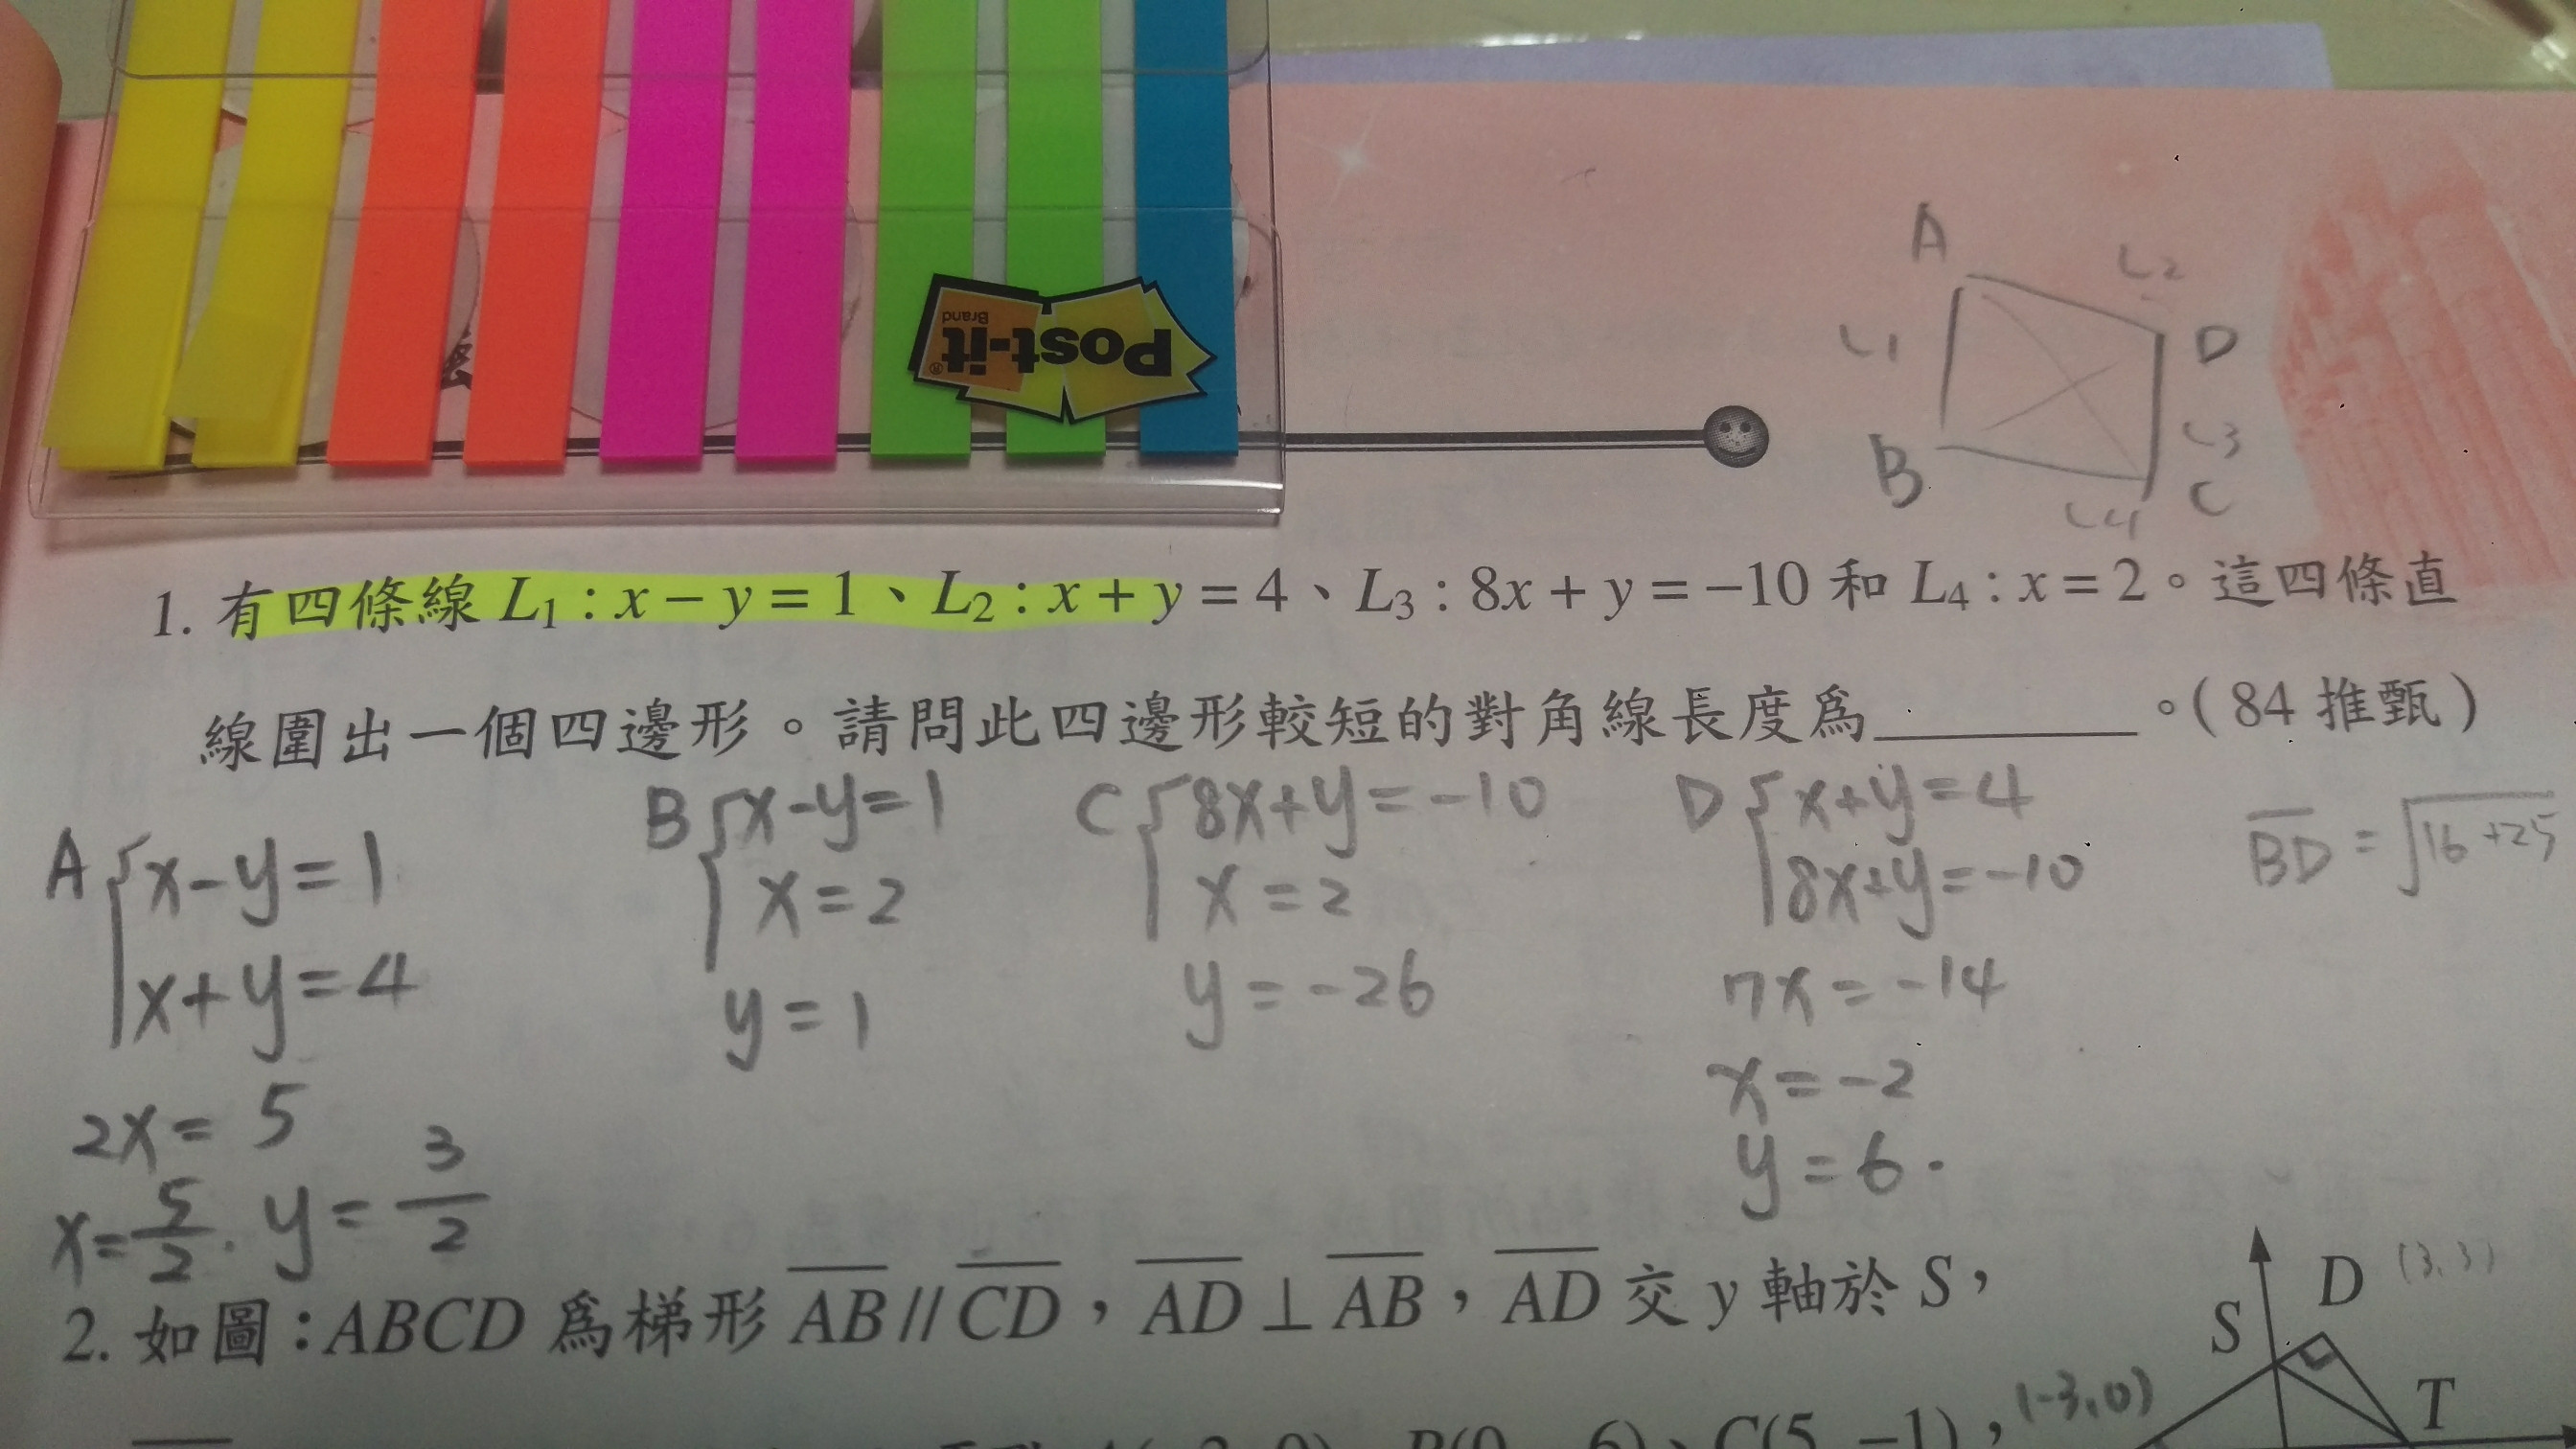 Post-it
Brand
A
L2
L1
D
L3
B
C
L4
1. 有四條線 L₁ : x − y = 1、L₂ : x + y = 4、L₃ : 8x + y = −10 和 L₄ : x = 2。這四條直
線圍出一個四邊形。請問此四邊形較短的對角線長度爲________。(84 推甄)
A { x-y=1
x+y=4
2x= 5
x=5/2. y=3/2
B { x-y=1
x=2
y=1
C { 8x+y=-10
x=2
y=-26
D { x+y=4
8x+y=-10
7x=-14
x=-2
y=6.
B̅D̅ = √16+25
2. 如圖:ABCD 爲梯形 A̅B̅ // C̅D̅,A̅D̅ ⊥ A̅B̅,A̅D̅ 交 y 軸於 S,
D (3,3)
S
T
C(5, −1),(-3,0)